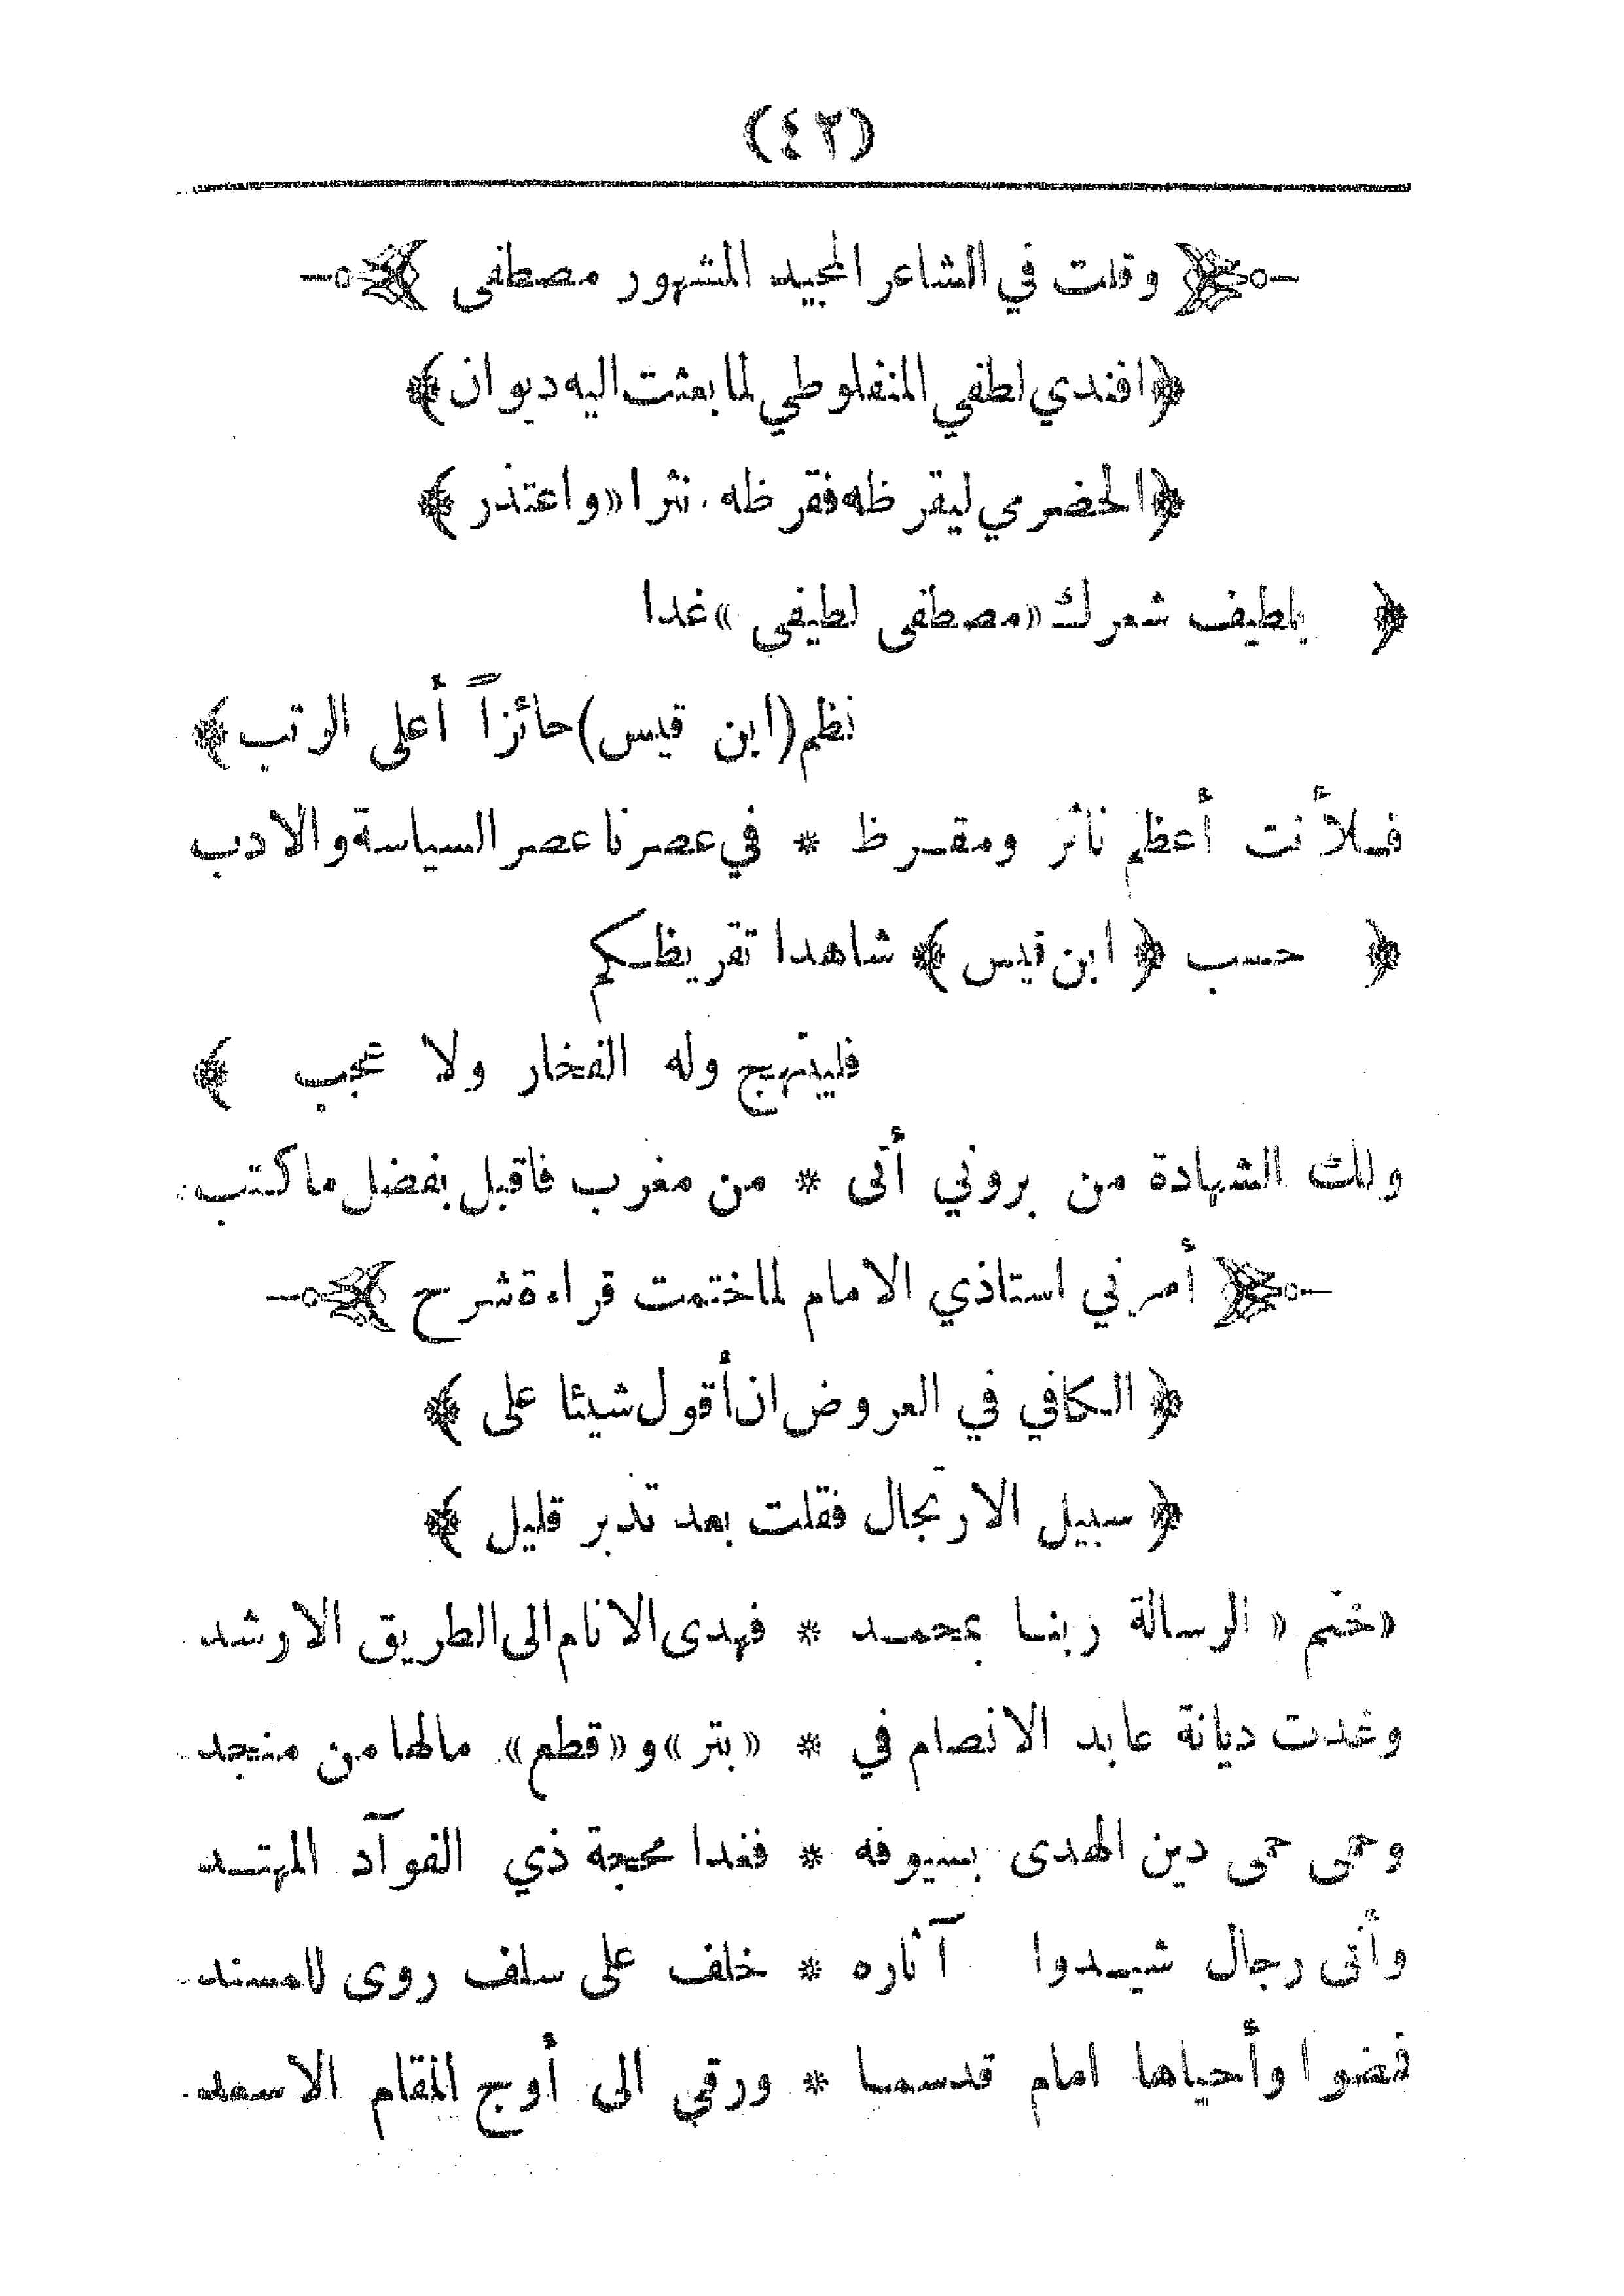 (٤٢)
﴿ وقلت في الشاعر المجيد المشهور مصطفى ﴾
﴿افندي لطفي المنفلوطي لما بعثت اليه ديوان﴾
﴿الحضرمي ليقرظه فقرظه. نثرا «واعتذر﴾
﴿ يالطيف شعرك «مصطفى لطيفي» غدا
نظم (ابن قيس) حائزاً أعلى الرتب﴾
فلأنت أعظم ناثر ومقرظ * في عصرنا عصر السياسة والادب
﴿ حسب ﴿ ابن قيس ﴾ شاهدا تقريظكم
فليبتهج وله الفخار ولا عجب ﴾
ولك الشهادة من بروني أتى * من مغرب فاقبل بفضل ماكتب
﴿ أمرني استاذي الامام لما ختمت قراءة شرح ﴾
﴿ الكافي في العروض ان أقول شيئا على ﴾
﴿ سبيل الارتجال فقلت بعد تدبر قليل ﴾
«ختم» الرسالة ربنا بمحمد * فهدى الانام الى الطريق الارشد
وغدت ديانة عابد الانصام في * «بتر» و«قطع» مالها من منجد
وحمى حمى دين الهدى بسيوفه * فغدا محجة ذي الفوآد المهتد
وأتى رجال شيدوا آثاره * خلف على سلف روى للمسند
فمضوا وأحياها امام قدسما * ورقي الى أوج المقام الاسعد